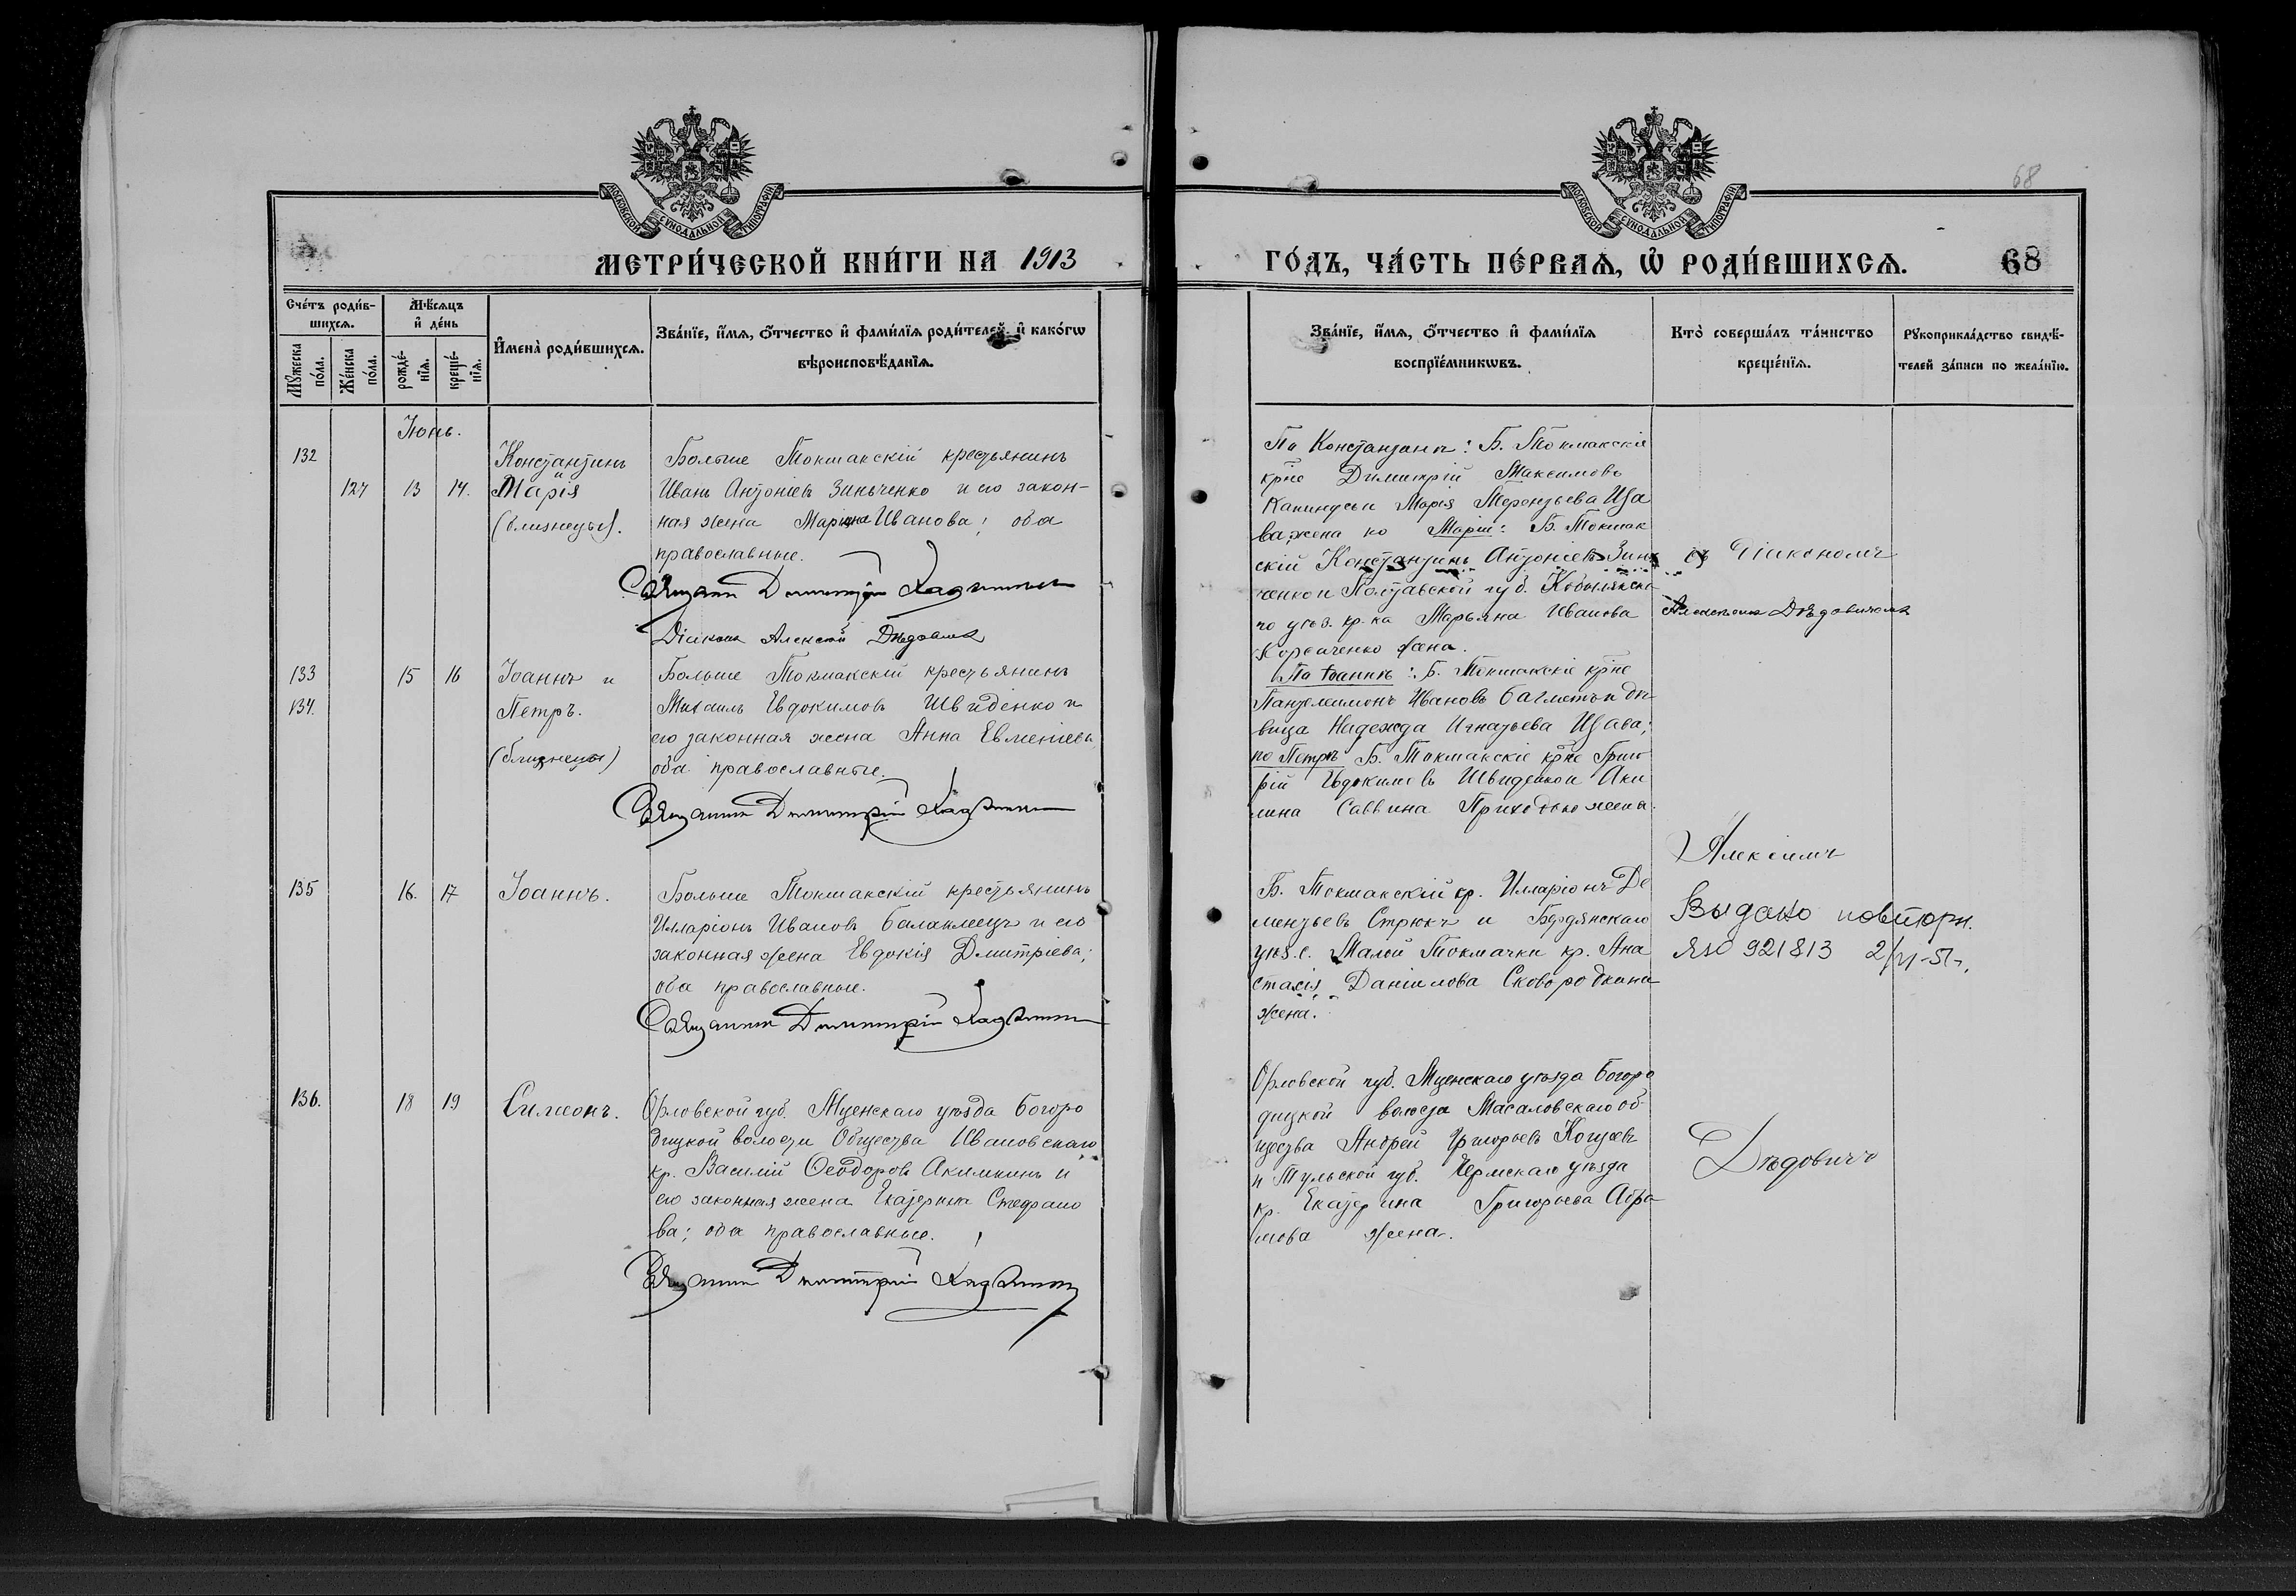 МОСКОВСКОЙ СУНОДАЛЬНОЙ ТИПОГРАФІИ
МЕТРИ́ЧЕСКОЙ КНИ́ГИ НА 1913
Сче́тъ роди́в-
шихсѧ.
Мꙋ́жеска по́ла.
Же́нска по́ла.
Мѣ́сѧцъ
и҆ де́нь
рожде́-
нїѧ.
креще́-
нїѧ.
И҆мена̀ роди́вшихсѧ.
Зва́нїе, и҆́мѧ, ѻ҆́тчество и҆ фами́лїѧ роди́телей, и҆ како́гѡ
вѣроисповѣ́данїѧ.
Іюнь.
132
127 13 14.
Константинъ
и
Марія
(близнецы).
Больше Токмакскій крестьянинъ
Иванъ Антоніевъ Зинченко и его закон-
ная жена Маріана Иванова; оба
православные.
Священникъ Димитрій
Діаконъ Алексій Дѣдовичъ
133 15 16
134.
Іоаннъ и
Петръ.
(близнецы)
Больше Токмакскій крестьянинъ
Михаилъ Евдокимовъ Швиденко и
его законная жена Анна Евменіева,
оба православные.
Священникъ Димитрій
135 16. 17
Іоаннъ.
Больше Токмакскій крестьянинъ
Илларіонъ Ивановъ Балаклеецъ и его
законная жена Евдокія Дмитріева;
оба православные.
Священникъ Димитрій
136. 18 19
Симеонъ.
Орловской губ. Мценскаго уѣзда Богоро
дицкой волости Общества Ивановскаго
кр. Василій Ѳеодоровъ Акимкинъ и
его законная жена Екатерина Стефано
ва; оба православные.
Священникъ Димитрій
68
МОСКОВСКОЙ СУНОДАЛЬНОЙ ТИПОГРАФІИ
ГО́ДЪ, ЧА́СТЬ ПЕ́РВАѦ, Ѡ҆ РОДИ́ВШИХСѦ.
68
Зва́нїе, и҆́мѧ, ѻ҆́тчество и҆ фами́лїѧ
воспрїе́мникѡвъ.
Кто̀ соверша́лъ та́инство
креще́нїѧ.
Рꙋкоприкла́дство свидѣ́-
телей за́писи по жела́нїю.
По Константинѣ: Б. Токмакскіе
кр̃не Димитрій Максимовъ
и Марія Терентьева
жена по Маріи: Б. Токмак
скій Константинъ Антоніевъ Зин
ченко и Полтавской губ. Кобелякска
го уѣз. кр-ка Марьяна Иванова
жена.
съ Діакономъ
Алексѣемъ Дѣдовичемъ
По Іоаннѣ: Б. Токмакскіе кр̃не
Пантелеимонъ Ивановъ Багметъ и дѣ
вица Надежда Игнатьева
по Петрѣ Б. Токмакскіе кр̃не Григо
рій Евдокимовъ Швиденко и Аки
лина Саввина Приходько жена.
Алексіемъ
Б. Токмакскій кр. Илларіонъ Де
ментьевъ Стрюкъ и Бердянскаго
уѣз. с. Малой Токмачки кр. Ана
стасія Даніилова Сковородкина
жена.
Выдано повторн.
ЯЮ 921813 2/VI-51г.
Орловской губ. Мценскаго уѣзда Богоро
дицкой волости Масаловскаго об
щества Андрей Григорьевъ
и Тульской губ. уѣзда
кр. Екатерина Григорьева Абра
мова жена.
Дѣдовичъ